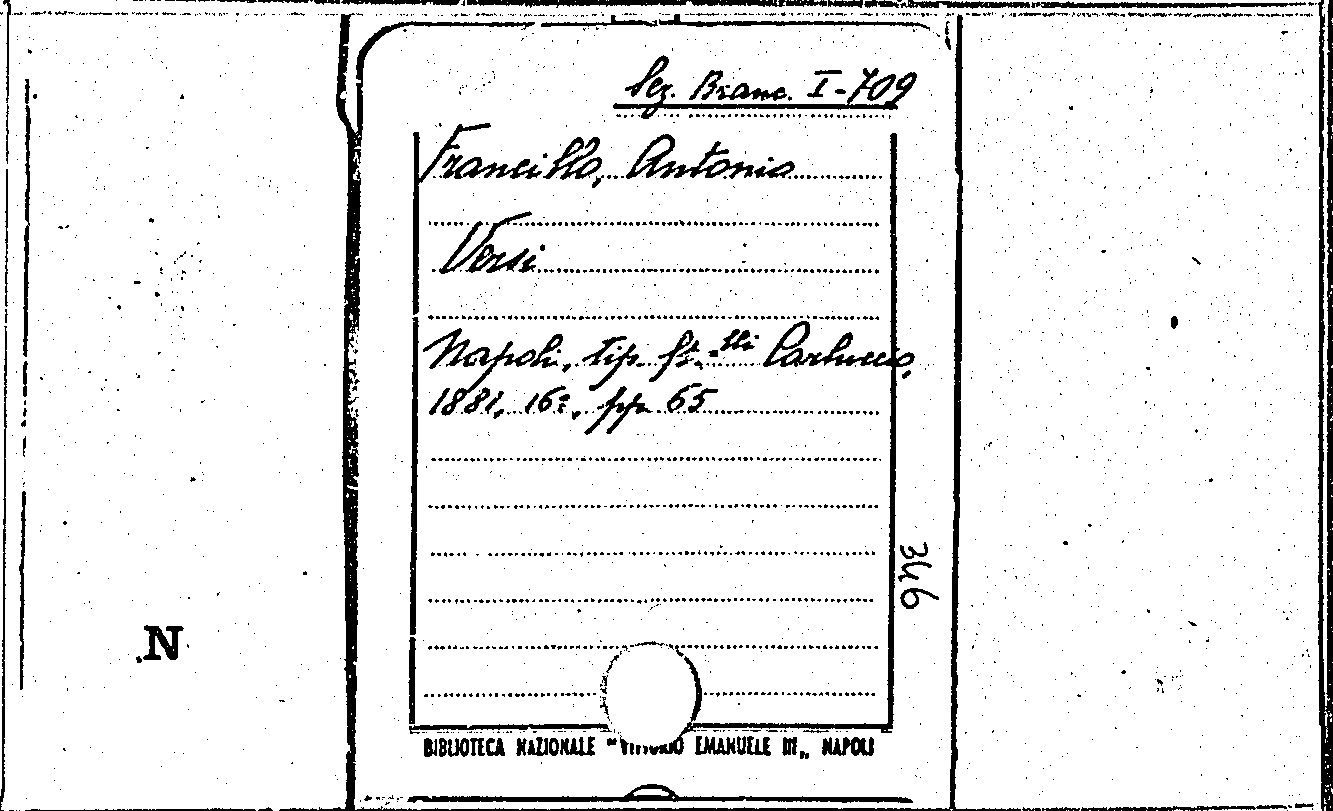 Sez. Branc. I-709
Francillo, Antonio
Versi
Napoli, tip. f.lli Carluccio,
1881, 16º, pp. 65
346
N
BIBLIOTECA NAZIONALE "VITTORIO EMANUELE III„ NAPOLI